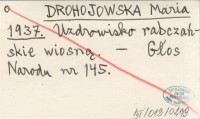 DROHOJOWSKA Maria
1937. Uzdrowisko rabczań-
skie wiosną. — Głos
Narodu nr 145.